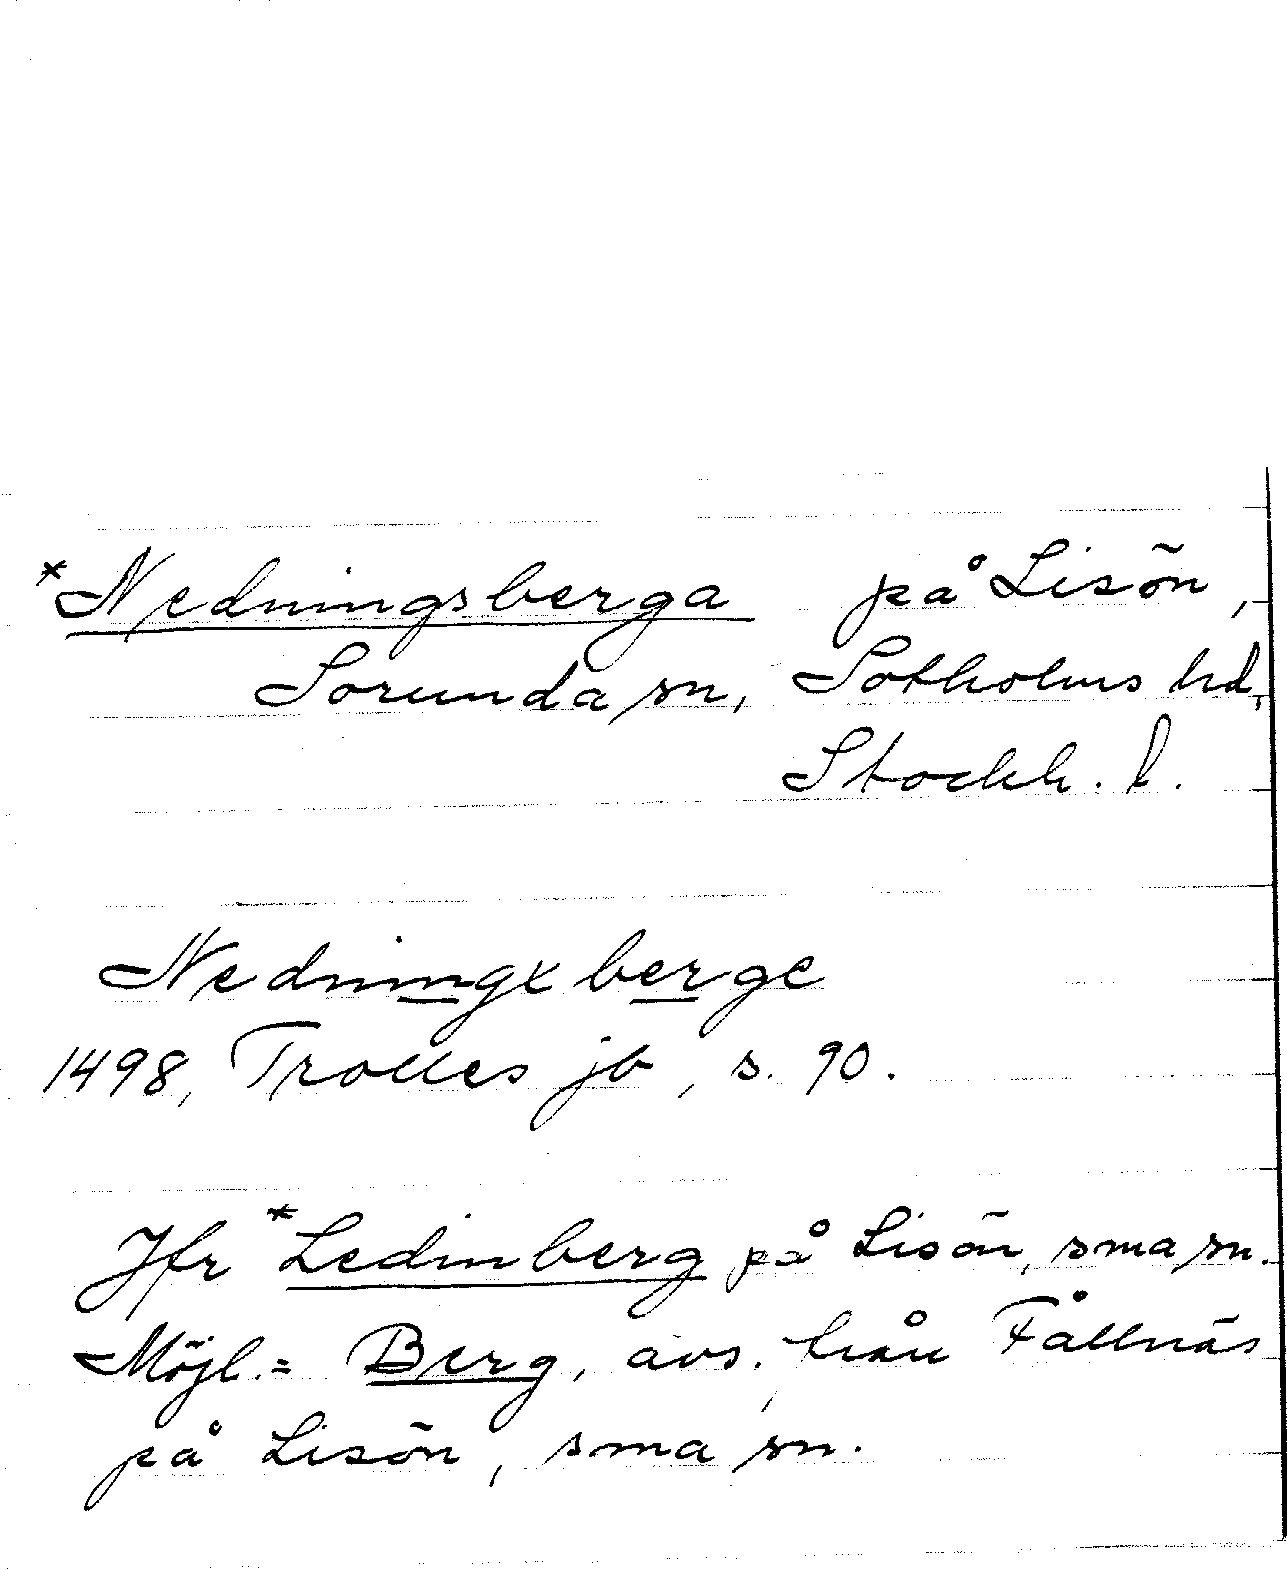 *Nedningsberga på Lisön,
Sorunda sn, Sotholms hd,
Stockh. l.
Nedningxberge
1498, Trolles jb, s. 90.
Jfr *Ledinberg på Lisön, sma sn.
Möjl. = Berg, avs. från Fållnäs
på Lisön, sma sn.